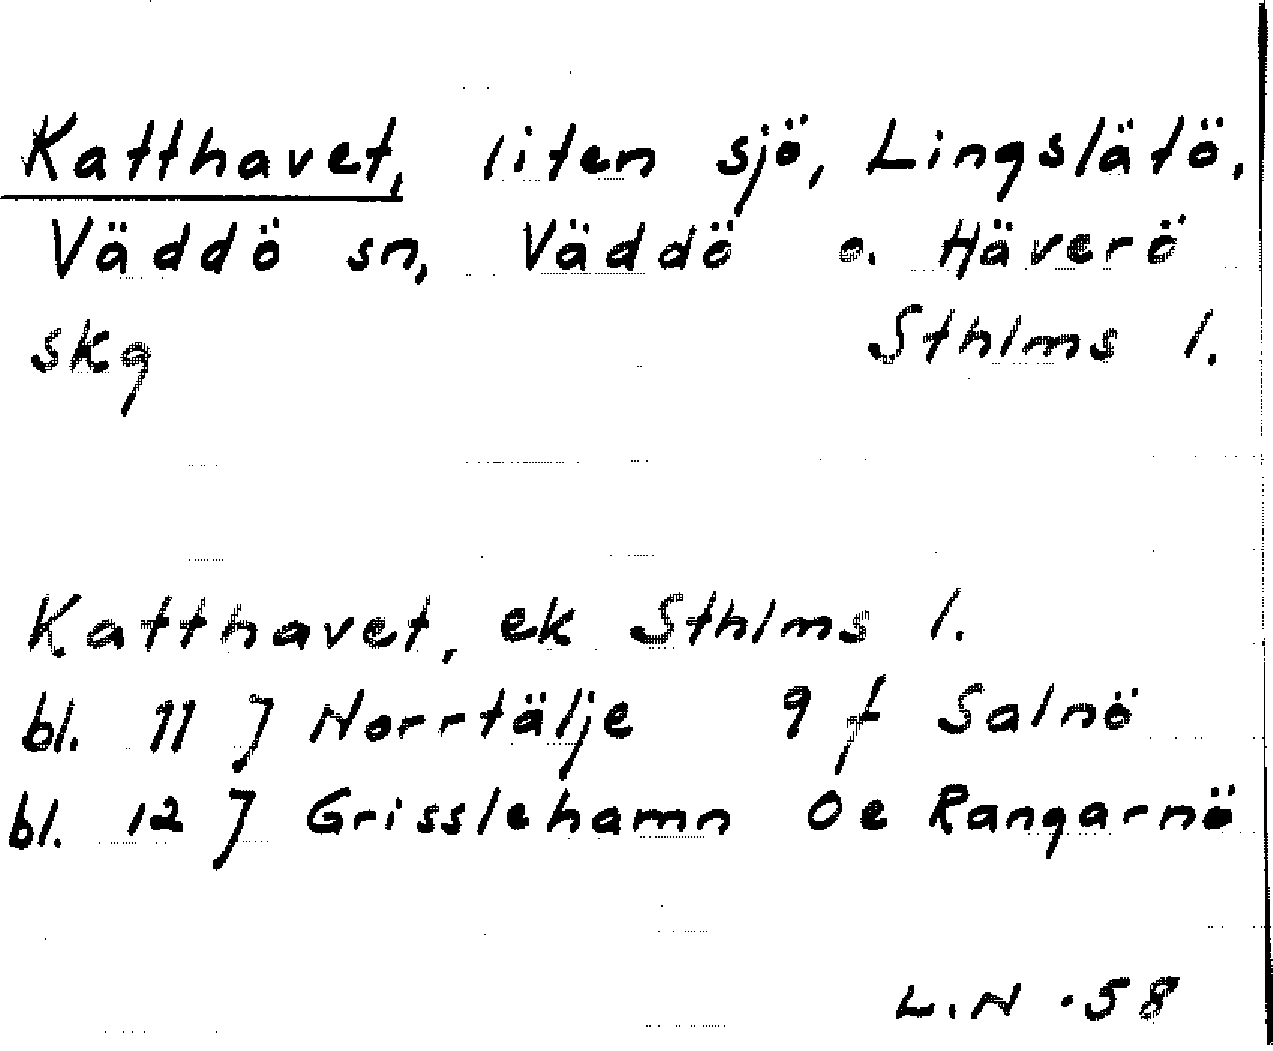 Katthavet, liten sjö, Lingslätö,
Väddö sn, Väddö o. Häverö
skg Sthlms l.
Katthavet, ek Sthlms l.
bl. 11 J Norrtälje 9 f Salnö
bl. 12 J Grisslehamn 0e Rangarnö
L.N. -58